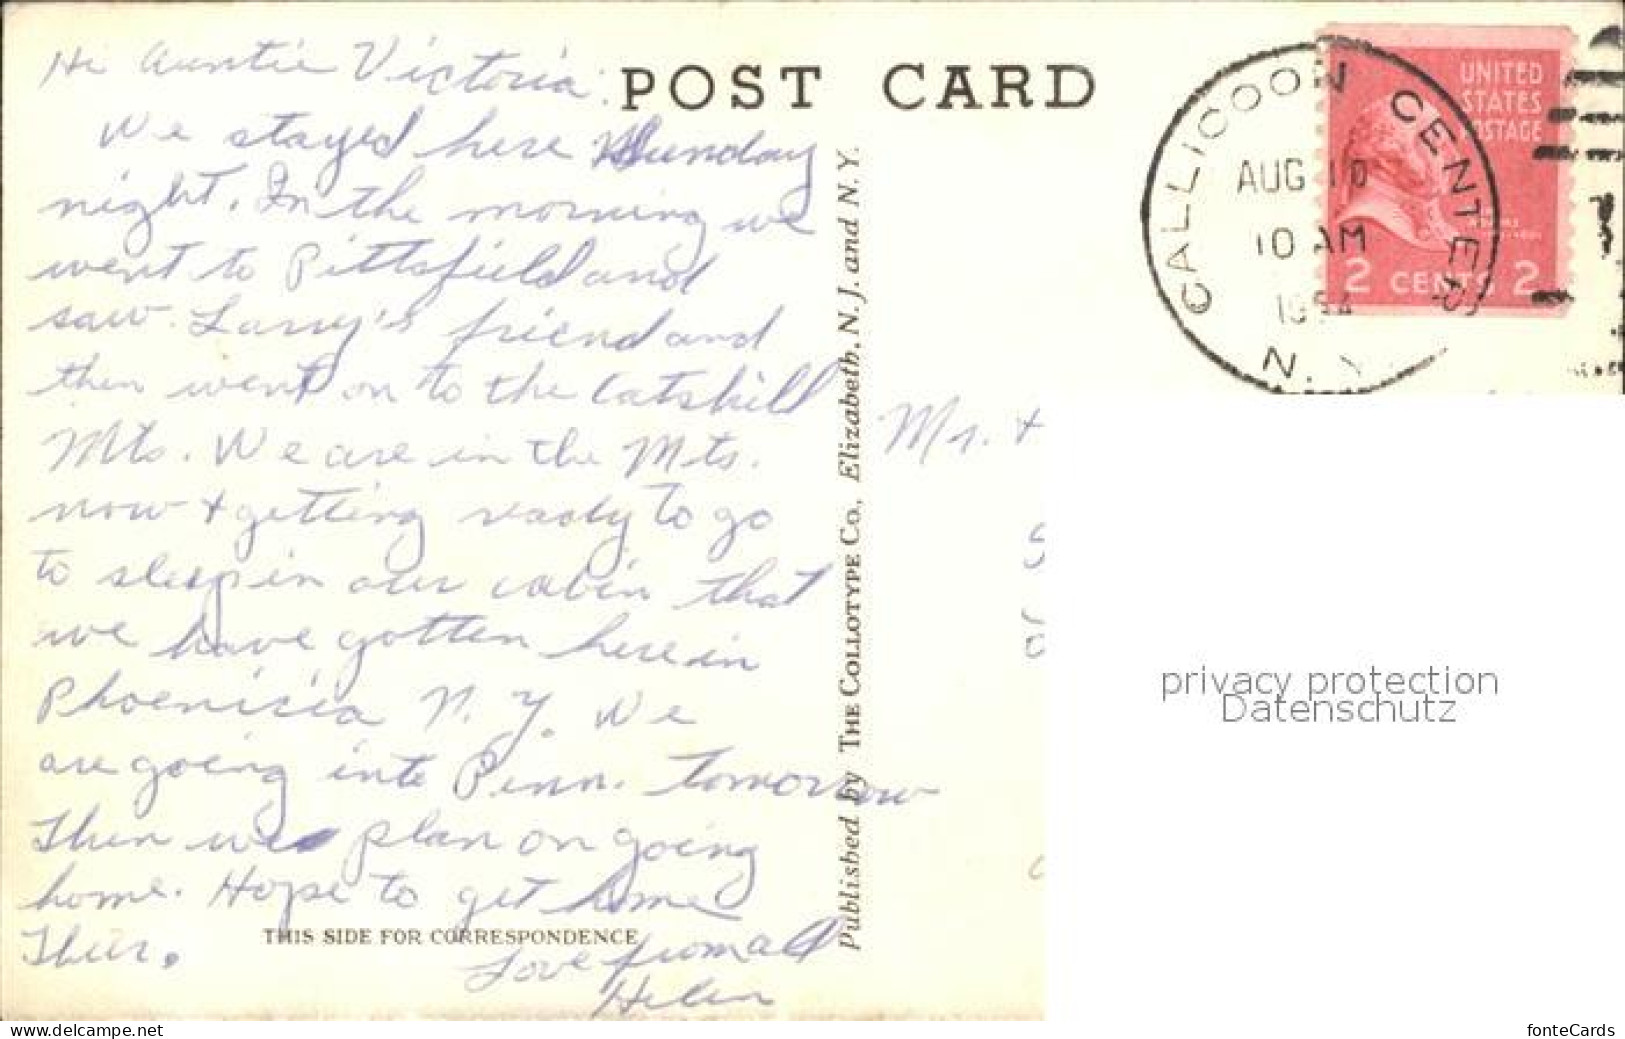 Hi Auntie Victoria:
We stayed here Sunday
night. In the morning we
went to Pittsfield and
saw Larry's friend and
then went on to the Catskill
Mts. We are in the Mts.
now + getting ready to go
to sleep in our cabin that
we have gotten here in
Phoenicia N. Y. We
are going into Penn. tomorrow
Then we plan on going
home. Hope to get home
Thur.
Love from all
Helen
THIS SIDE FOR CORRESPONDENCE
POST CARD
Published by THE COLLOTYPE CO., Elizabeth, N. J. and N. Y.
CALLICOON CENTER
AUG 10
10 AM
1954
N. Y.
UNITED
STATES
POSTAGE
2 CENTS 2
Mr. +
privacy protection
Datenschutz
www.delcampe.net
fonteCards